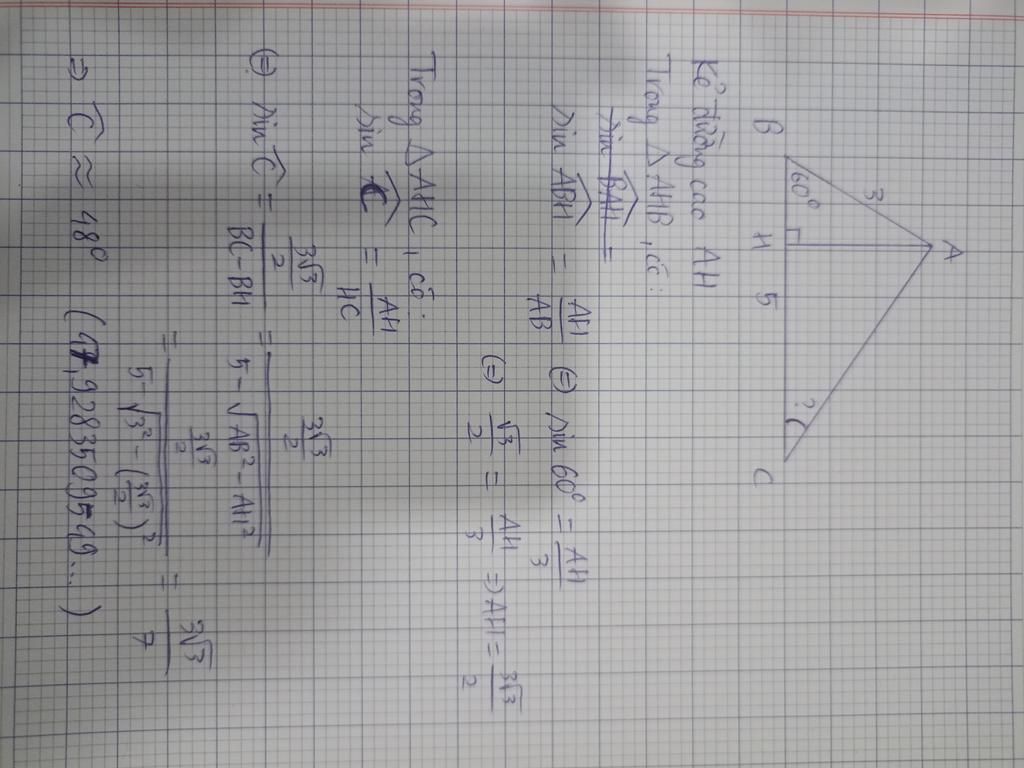 A
3
60°
?
B H 5 C
Kẻ đường cao AH
Trong △AHB, có:
sin BAH =
sin ABH = AH/AB ⇔ sin 60° = AH/3
⇔ √3/2 = AH/3 ⇒ AH = 3√3/2
Trong △AHC, có:
sin C = AH/HC
⇔ sin C = (3√3/2)/(BC - BH) = (3√3/2)/(5 - √(AB² - AH²))
= (3√3/2)/(5 - √(3² - (3√3/2)²)) = 3√3/7
⇒ C ≈ 48° (47,92835095949...)